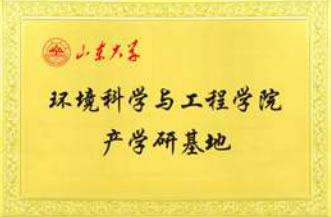 山东大学
环境科学与工程学院
产学研基地